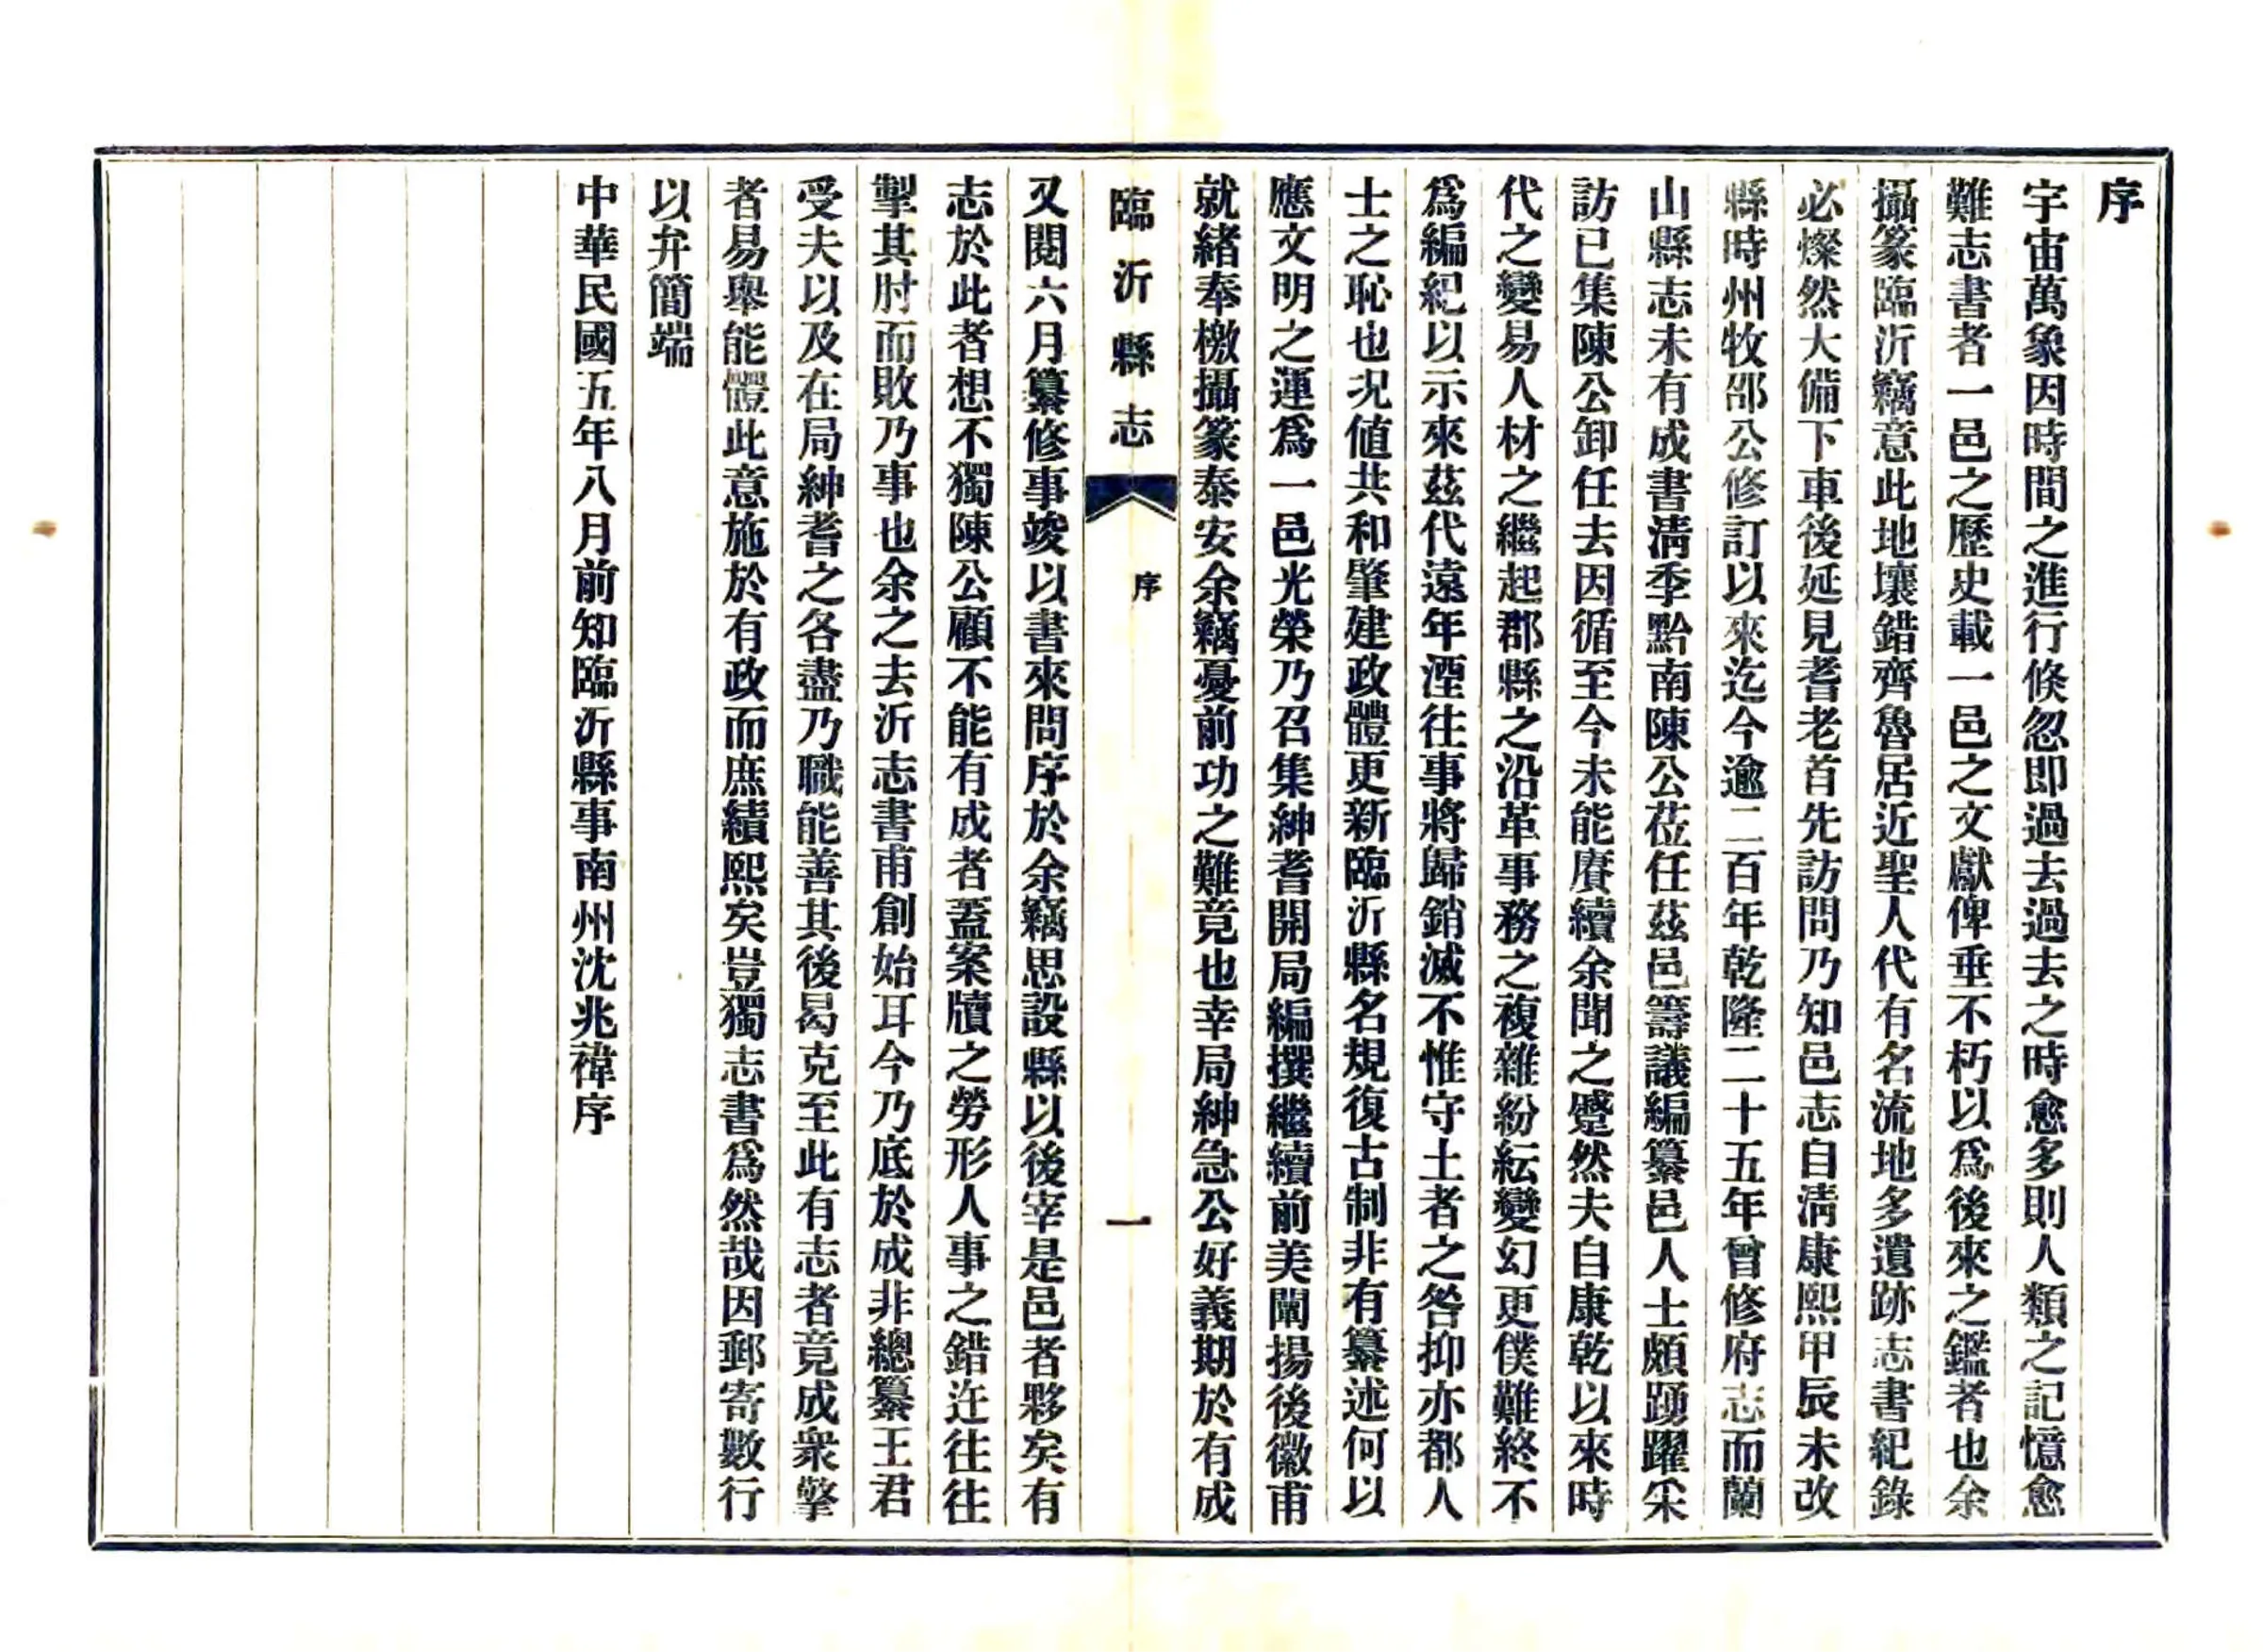 序
宇宙萬象因時間之進行倐忽即過去過去之時愈多則人類之記憶愈
難志書者一邑之歷史載一邑之文獻俾垂不朽以爲後來之鑑者也余
攝篆臨沂竊意此地壤錯齊魯居近聖人代有名流地多遺跡志書紀錄
必燦然大備下車後延見耆老首先訪問乃知邑志自淸康熙甲辰未改
縣時州牧邵公修訂以來迄今逾二百年乾隆二十五年曾修府志而蘭
山縣志未有成書淸季黔南陳公莅任茲邑籌議編纂邑人士頗踴躍采
訪已集陳公卸任去因循至今未能賡續余聞之蹙然夫自康乾以來時
代之變易人材之繼起郡縣之沿革事務之複雜紛紜變幻更僕難終不
爲編紀以示來茲代遠年湮往事將歸銷滅不惟守土者之咎抑亦都人
士之恥也况値共和肇建政體更新臨沂縣名規復古制非有纂述何以
應文明之運爲一邑光榮乃召集紳耆開局編撰繼續前美闡揚後徽甫
就緒奉檄攝篆泰安余竊憂前功之難竟也幸局紳急公好義期於有成
臨沂縣志
序
一
又閱六月纂修事竣以書來問序於余竊思設縣以後宰是邑者夥矣有
志於此者想不獨陳公顧不能有成者蓋案牘之勞形人事之錯迕往往
掣其肘而敗乃事也余之去沂志書甫創始耳今乃底於成非總纂王君
受夫以及在局紳耆之各盡乃職能善其後曷克至此有志者竟成衆擎
者易舉能體此意施於有政而庶績熙矣豈獨志書爲然哉因郵寄數行
以弁簡端
中華民國五年八月前知臨沂縣事南州沈兆禕序